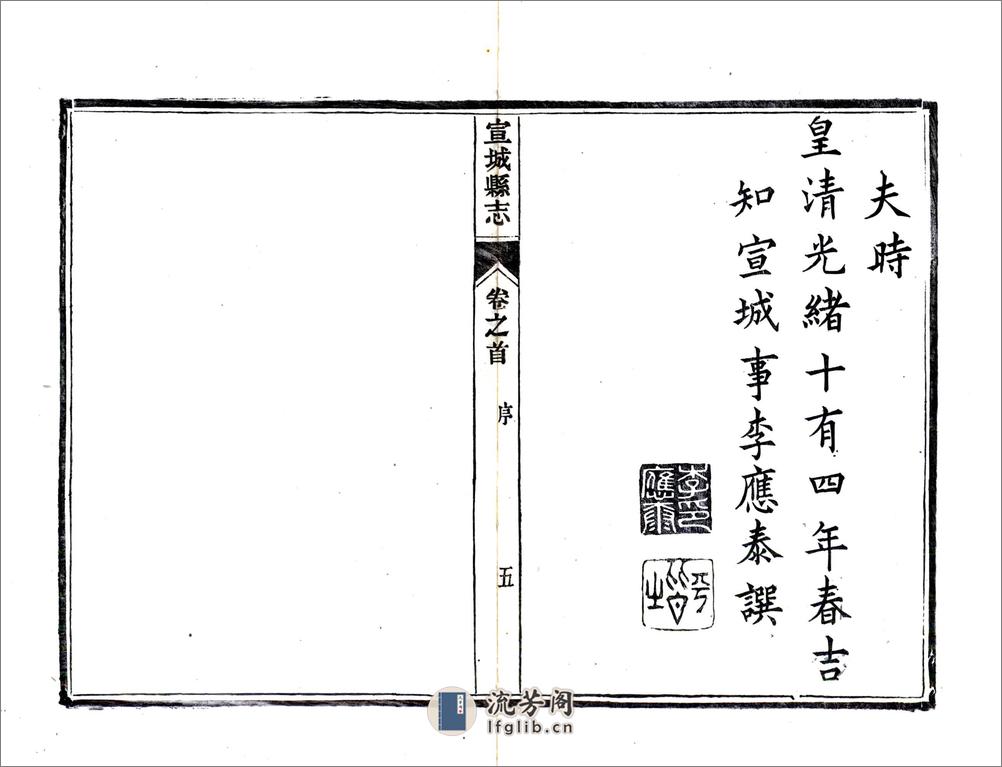 夫時
皇清光緒十有四年春吉
知宣城事李應泰譔
宣城縣志
卷之首
序
五
流芳阁
lfglib.cn